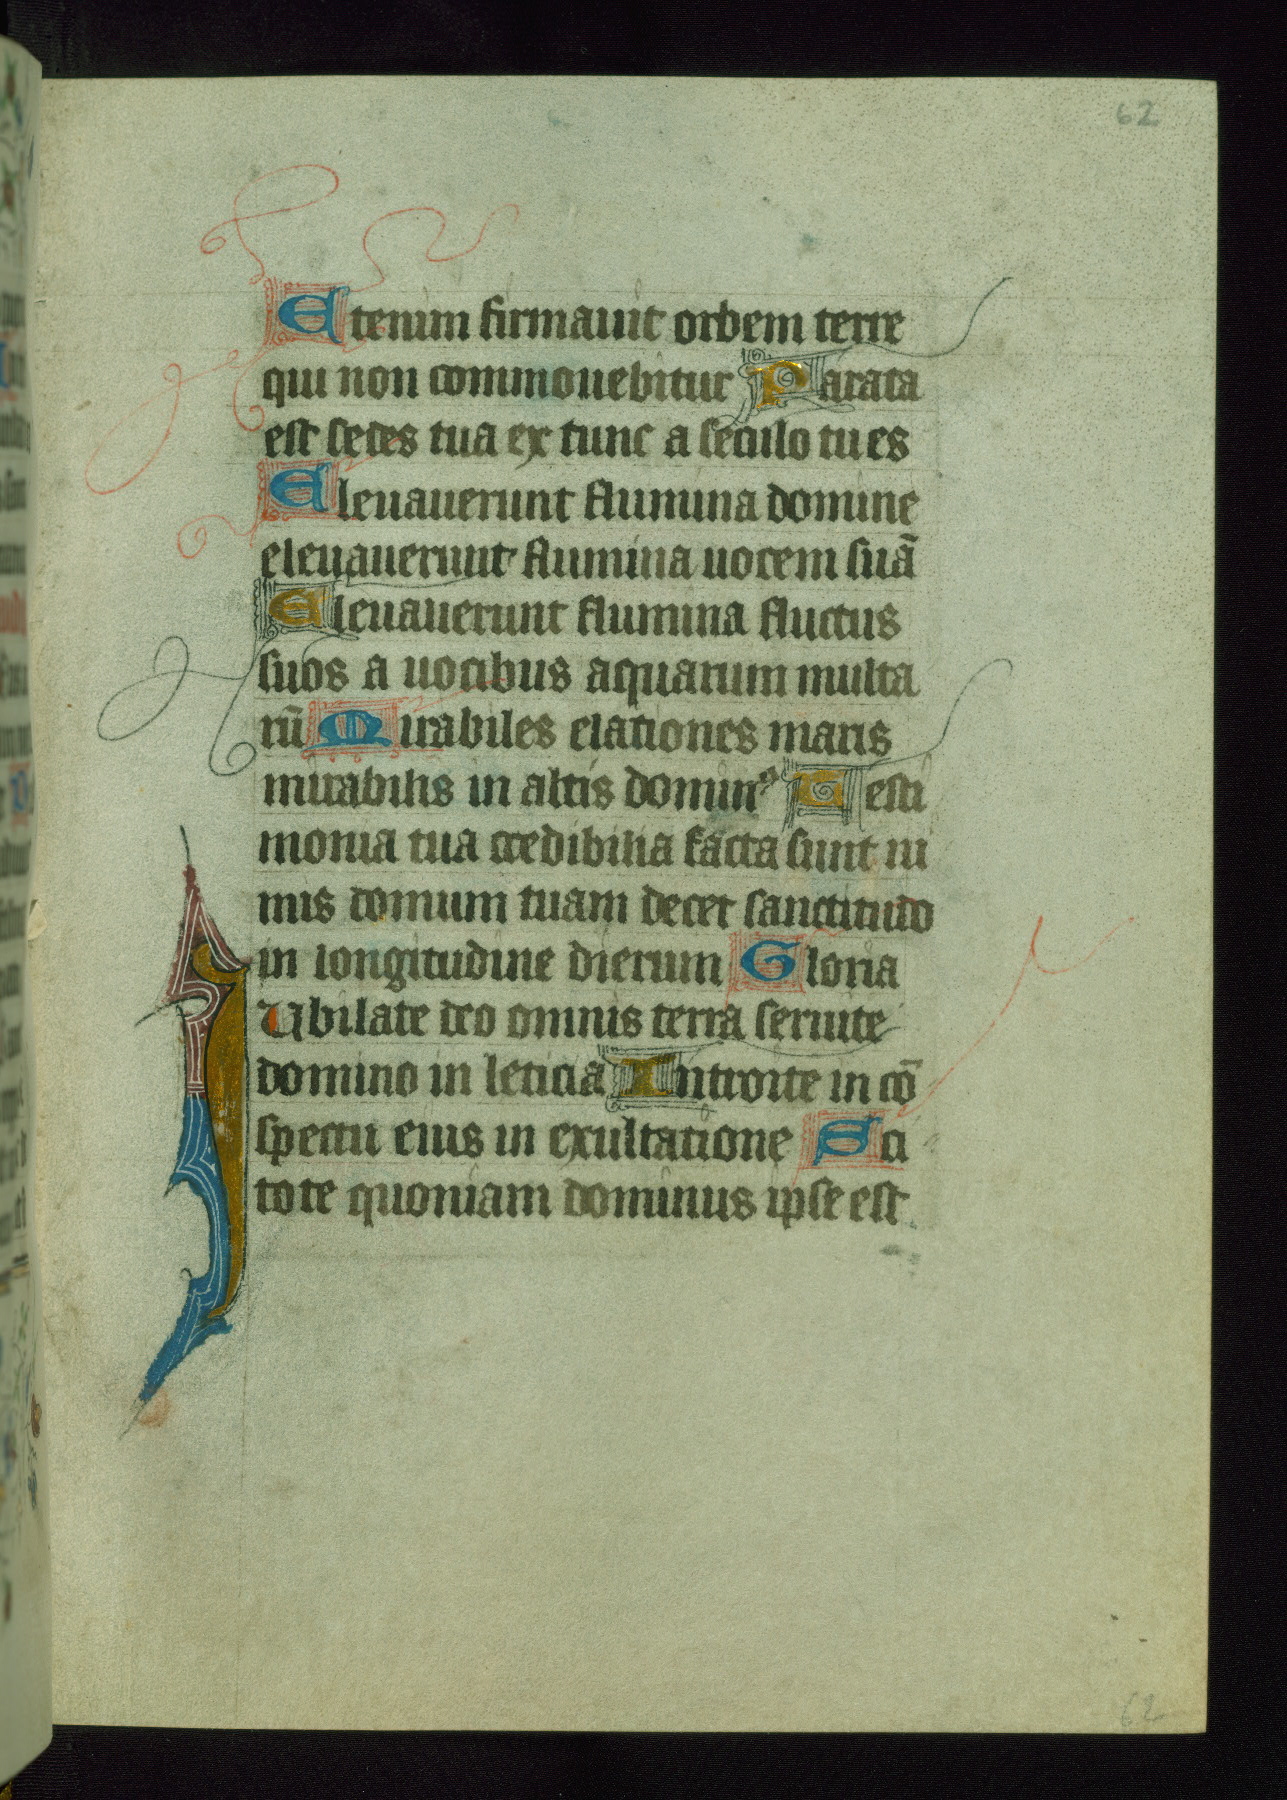 62
Etenim firmauit orbem terre
qui non commouebitur Parata
est sedes tua ex tunc a seculo tu es
Eleuauerunt flumina domine
eleuauerunt flumina uocem suā
Eleuauerunt flumina fluctus
suos a uocibus aquarum multa
rū Mirabiles elationes maris
mirabilis in altis dominꝰ Testi
monia tua credibilia facta sunt ni
mis domum tuam decet sanctitudo
in longitudine dierum Gloria
Iubilate deo omnis terra seruite
domino in leticia Introite in cō
spectu eius in exultatione Sci
tote quoniam dominus ipse est
62